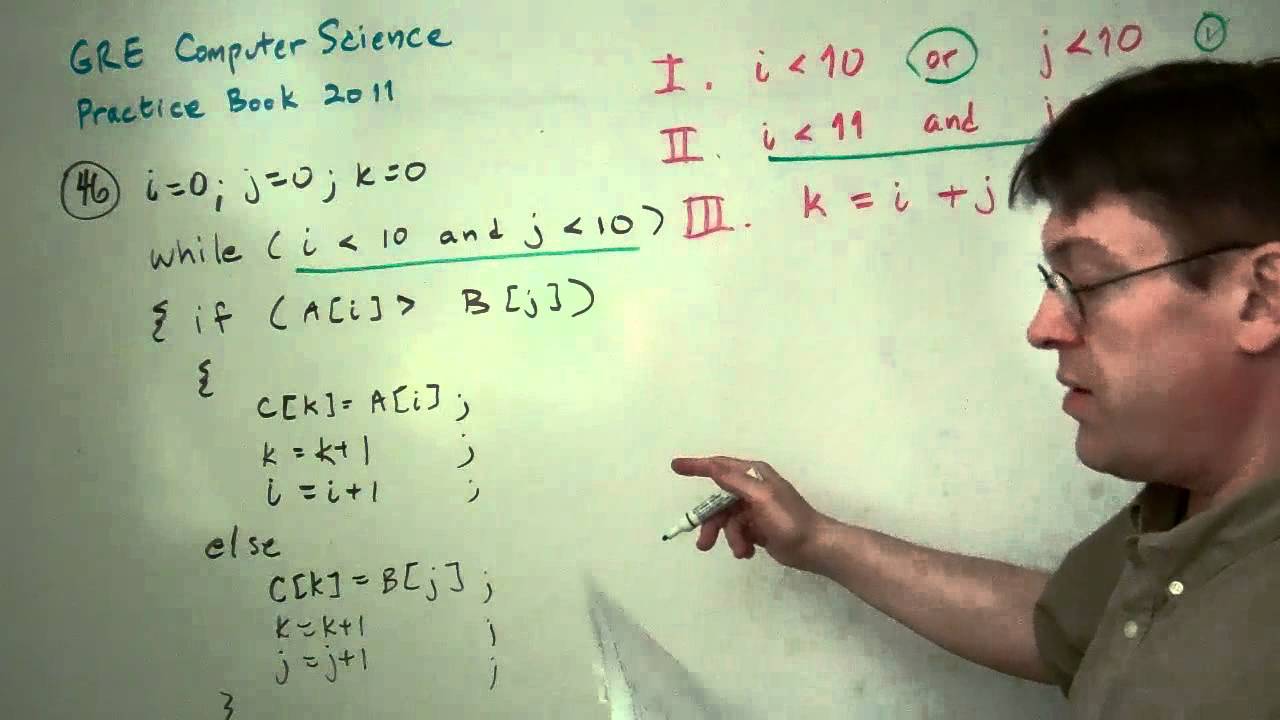 GRE Computer Science
Practice Book 2011
46 i=0; j=0; k=0
while (i < 10 and j < 10)
{ if (A[i] > B[j])
{
C[k] = A[i];
k = k+1 ;
i = i+1 ;
else
C[k] = B[j];
k=k+1 ;
j=j+1 ;
}
I. i < 10 or j < 10
II. i < 11 and
III. k = i + j